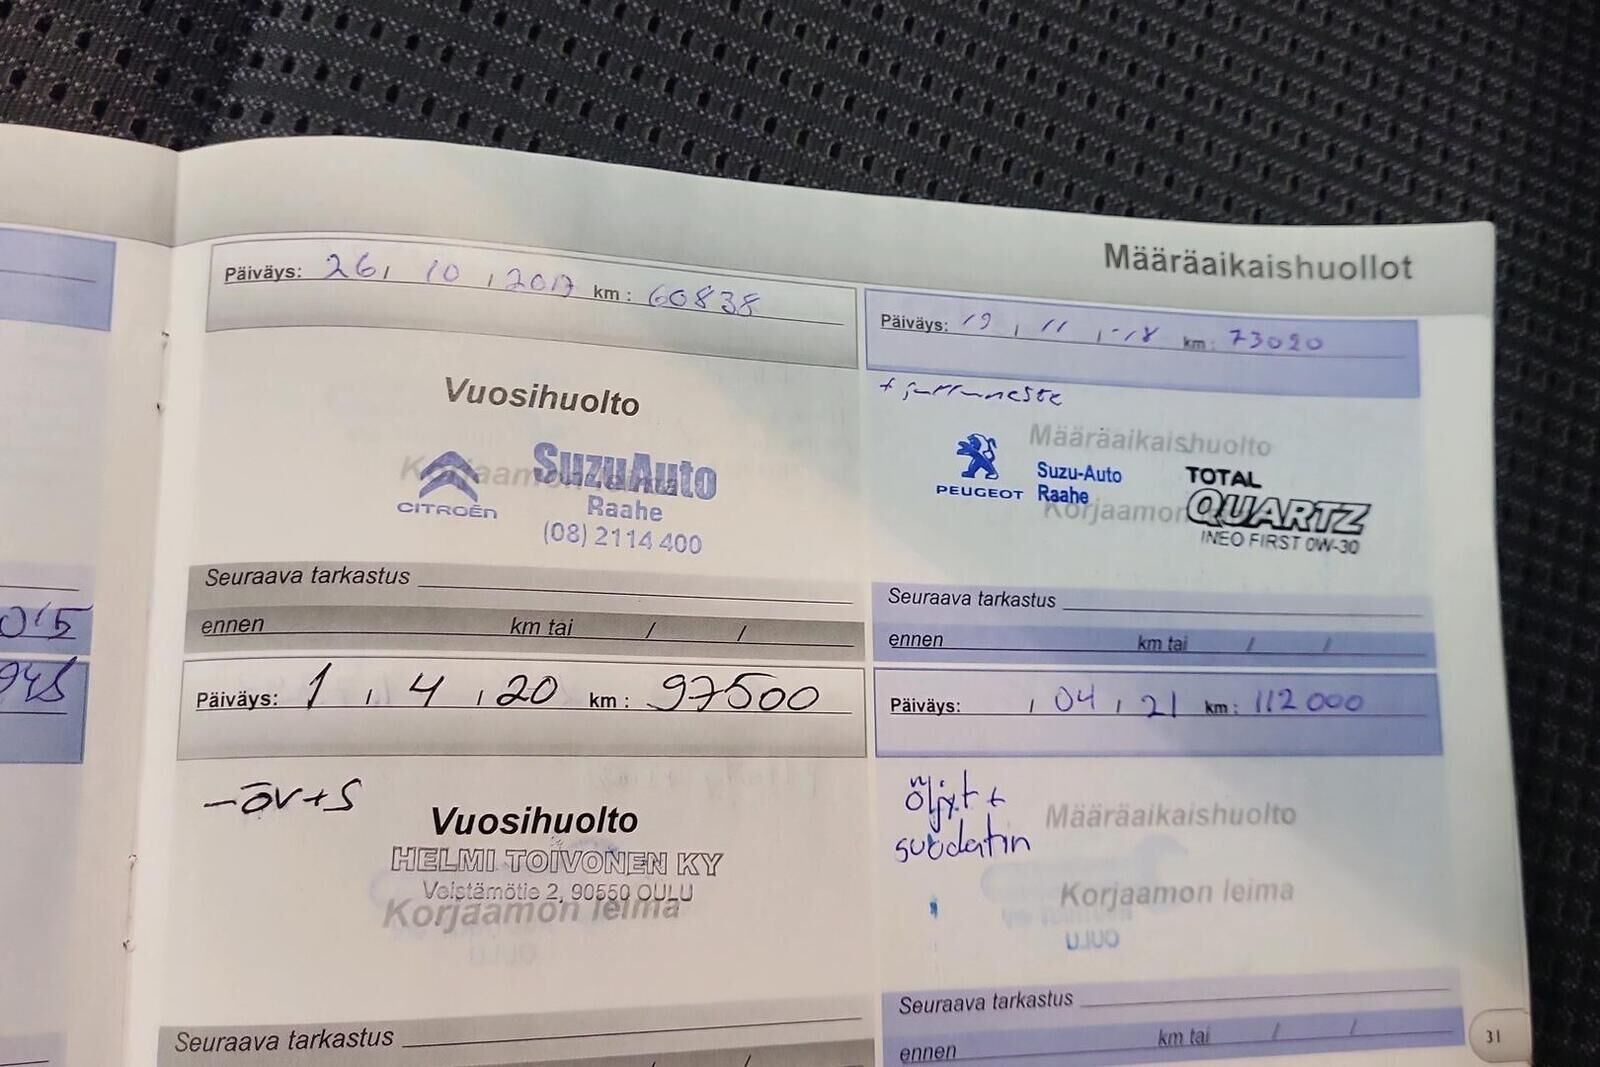 Määräaikaishuollot
Päiväys: 26, 10, 2017 km: 60838
Vuosihuolto
Korjaamon leima
CITROËN
SuzuAuto
Raahe
(08) 2114 400
Seuraava tarkastus
ennen km tai / /
Päiväys: 19, 11, -18 km: 73020
+ jarruneste
Määräaikaishuolto
PEUGEOT
Suzu-Auto
Raahe
Korjaamon
TOTAL
QUARTZ
INEO FIRST 0W-30
Seuraava tarkastus
ennen km tai / /
015
Päiväys: 1, 4, 20 km: 97500
-ÖV+S
Vuosihuolto
HELMI TOIVONEN KY
Veistämötie 2, 90550 OULU
Korjaamon leima
Seuraava tarkastus
Päiväys: , 04, 21 km: 112000
öljyt +
suodatin
Määräaikaishuolto
Korjaamon leima
OULU
Seuraava tarkastus
ennen km tai / /
31